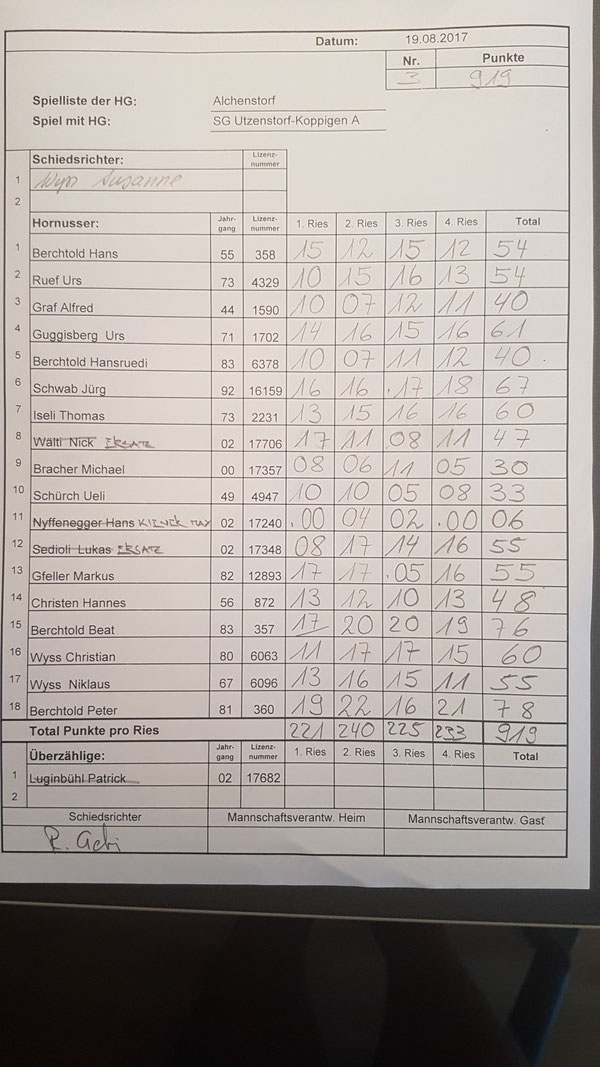 Datum: 19.08.2017
Nr. Punkte
3 919
Spielliste der HG: Alchenstorf
Spiel mit HG: SG Utzenstorf-Koppigen A
Schiedsrichter: Lizenz-nummer
1 Wyss Susanne
2
Hornusser: Jahr-gang Lizenz-nummer 1. Ries 2. Ries 3. Ries 4. Ries Total
1 Berchtold Hans 55 358 15 12 15 12 54
2 Ruef Urs 73 4329 10 15 16 13 54
3 Graf Alfred 44 1590 10 07 12 11 40
4 Guggisberg Urs 71 1702 14 16 15 16 61
5 Berchtold Hansruedi 83 6378 10 07 11 12 40
6 Schwab Jürg 92 16159 16 16 17 18 67
7 Iseli Thomas 73 2231 13 15 16 16 60
8 Wälti Nick ERSATZ 02 17706 17 11 08 11 47
9 Bracher Michael 00 17357 08 06 11 05 30
10 Schürch Ueli 49 4947 10 10 05 08 33
11 Nyffenegger Hans 02 17240 00 04 02 00 06
12 Sedioli Lukas ERSATZ 02 17348 08 17 14 16 55
13 Gfeller Markus 82 12893 17 17 05 16 55
14 Christen Hannes 56 872 13 12 10 13 48
15 Berchtold Beat 83 357 17 20 20 19 76
16 Wyss Christian 80 6063 11 17 17 15 60
17 Wyss Niklaus 67 6096 13 16 15 11 55
18 Berchtold Peter 81 360 19 22 16 21 78
Total Punkte pro Ries 221 240 225 233 919
Überzählige: Jahr-gang Lizenz-nummer 1. Ries 2. Ries 3. Ries 4. Ries Total
1 Luginbühl Patrick 02 17682
2
Schiedsrichter Mannschaftsverantw. Heim Mannschaftsverantw. Gast